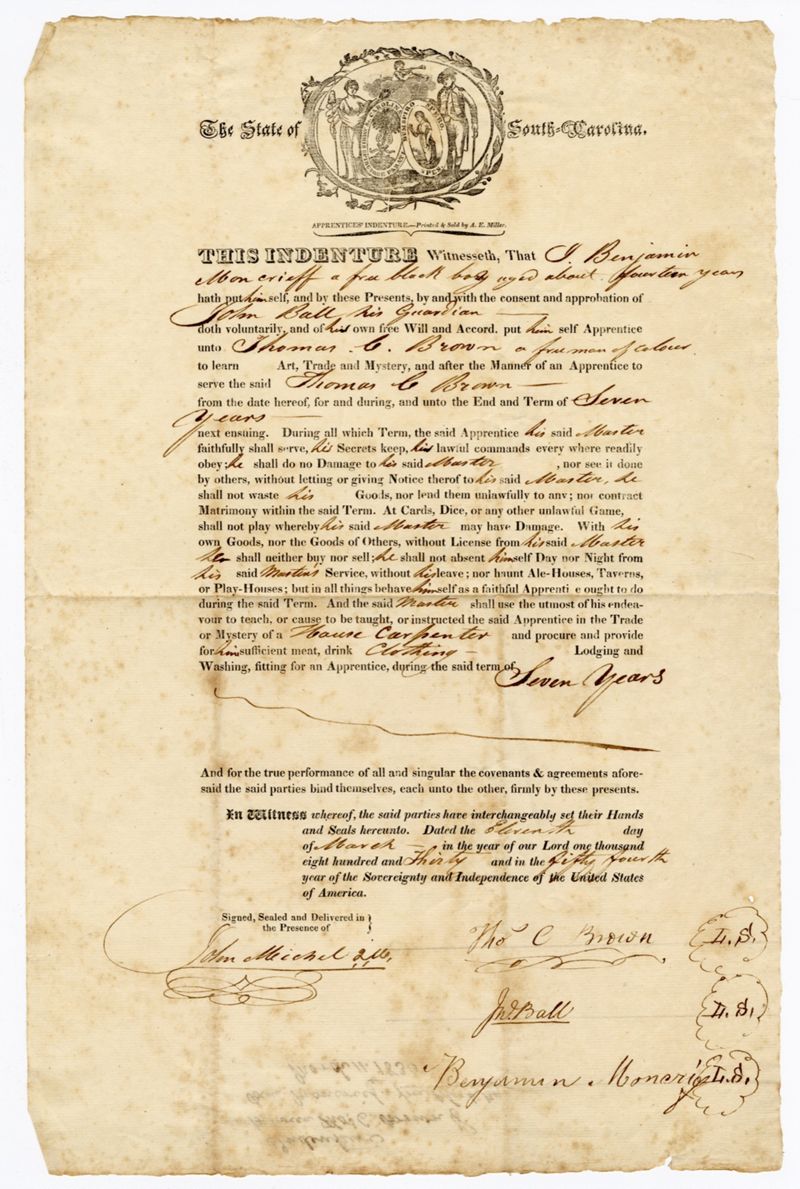 The State of South-Carolina.
APPRENTICES' INDENTURE.—Printed & Sold by A. E. Miller.
THIS INDENTURE Witnesseth, That I. Benjamin
Moncrieff a free black boy aged about fourteen years
hath put himself, and by these Presents, by and with the consent and approbation of
John Ball his Guardian
doth voluntarily, and of his own free Will and Accord, put him self Apprentice
unto Thomas C. Brown a free man of colour
to learn Art, Trade and Mystery, and after the Manner of an Apprentice to
serve the said Thomas C Brown
from the date hereof, for and during, and unto the End and Term of Seven
Years
next ensuing. During all which Term, the said Apprentice his said Master
faithfully shall serve, his Secrets keep, his lawful commands every where readily
obey; he shall do no Damage to his said Master, nor see it done
by others, without letting or giving Notice therof to his said Master, he
shall not waste his Goods, nor lend them unlawfully to any; nor contract
Matrimony within the said Term. At Cards, Dice, or any other unlawful Game,
shall not play whereby his said Master may have Damage. With his
own Goods, nor the Goods of Others, without License from his said Master
he shall neither buy nor sell; he shall not absent himself Day nor Night from
his said Master's Service, without his leave; nor haunt Ale-Houses, Taverns,
or Play-Houses; but in all things behave himself as a faithful Apprenti e ought to do
during the said Term. And the said Master shall use the utmost of his endea-
vour to teach, or cause to be taught, or instructed the said Apprentice in the Trade
or Mystery of a House Carpenter and procure and provide
for him sufficient meat, drink Clothing Lodging and
Washing, fitting for an Apprentice, during the said term of
Seven Years
And for the true performance of all and singular the covenants & agreements afore-
said the said parties bind themselves, each unto the other, firmly by these presents.
In Witness whereof, the said parties have interchangeably set their Hands
and Seals hereunto. Dated the Eleventh day
of March in the year of our Lord one thousand
eight hundred and Thirty and in the fifty fourth
year of the Sovereignty and Independence of the United States
of America.
Signed, Sealed and Delivered in
the Presence of
John Michel
Tho C Brown L.S.
Jno Ball L.S.
Benjamin Moncrief L.S.